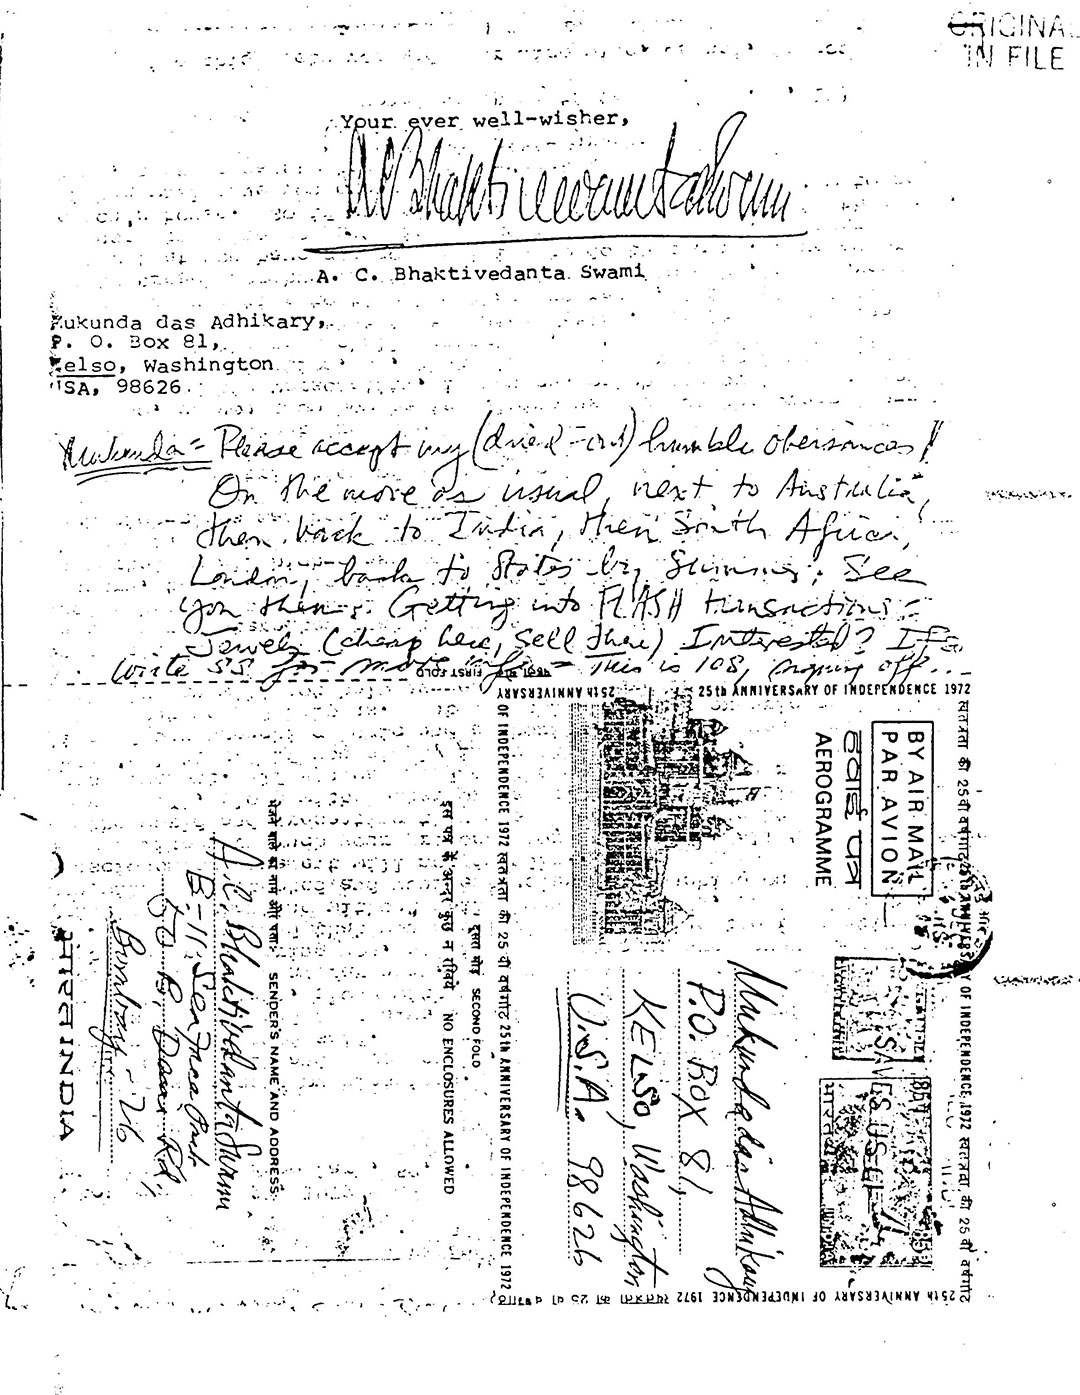 ORIGINAL
IN FILE
Your ever well-wisher,
A. C. Bhaktivedanta Swami
Mukunda das Adhikary,
P. O. Box 81,
Kelso, Washington
USA, 98626
Mukunda - Please accept my (dried-out) humble obeisances!
On the move as usual, next to Australia,
then back to India, then South Africa,
London, back to States by Summer. See
you then. Getting into FLASH transactions -
Jewels (cheap here, sell there) Interested? If so
write SS for more info - This is 108, signing off...
FIRST FOLD
25th ANNIVERSARY OF INDEPENDENCE 1972
BY AIR MAIL
PAR AVION
हवाई पत्र
AEROGRAMME
Mukunda das Adhikary
P.O. BOX 81,
KELSO, Washington
U.S.A. 98626
स्वतंत्रता की 25 वीं वर्षगांठ 25th ANNIVERSARY OF INDEPENDENCE 1972
दूसरा मोड़ SECOND FOLD
इस पत्र के अन्दर कुछ न रखिये NO ENCLOSURES ALLOWED
भेजने वाले का नाम और पता: SENDER'S NAME AND ADDRESS:
A.C. Bhaktivedanta Swami
B-11, Sea Face Park
50 B. Desai Rd,
Bombay - 26
भारत INDIA